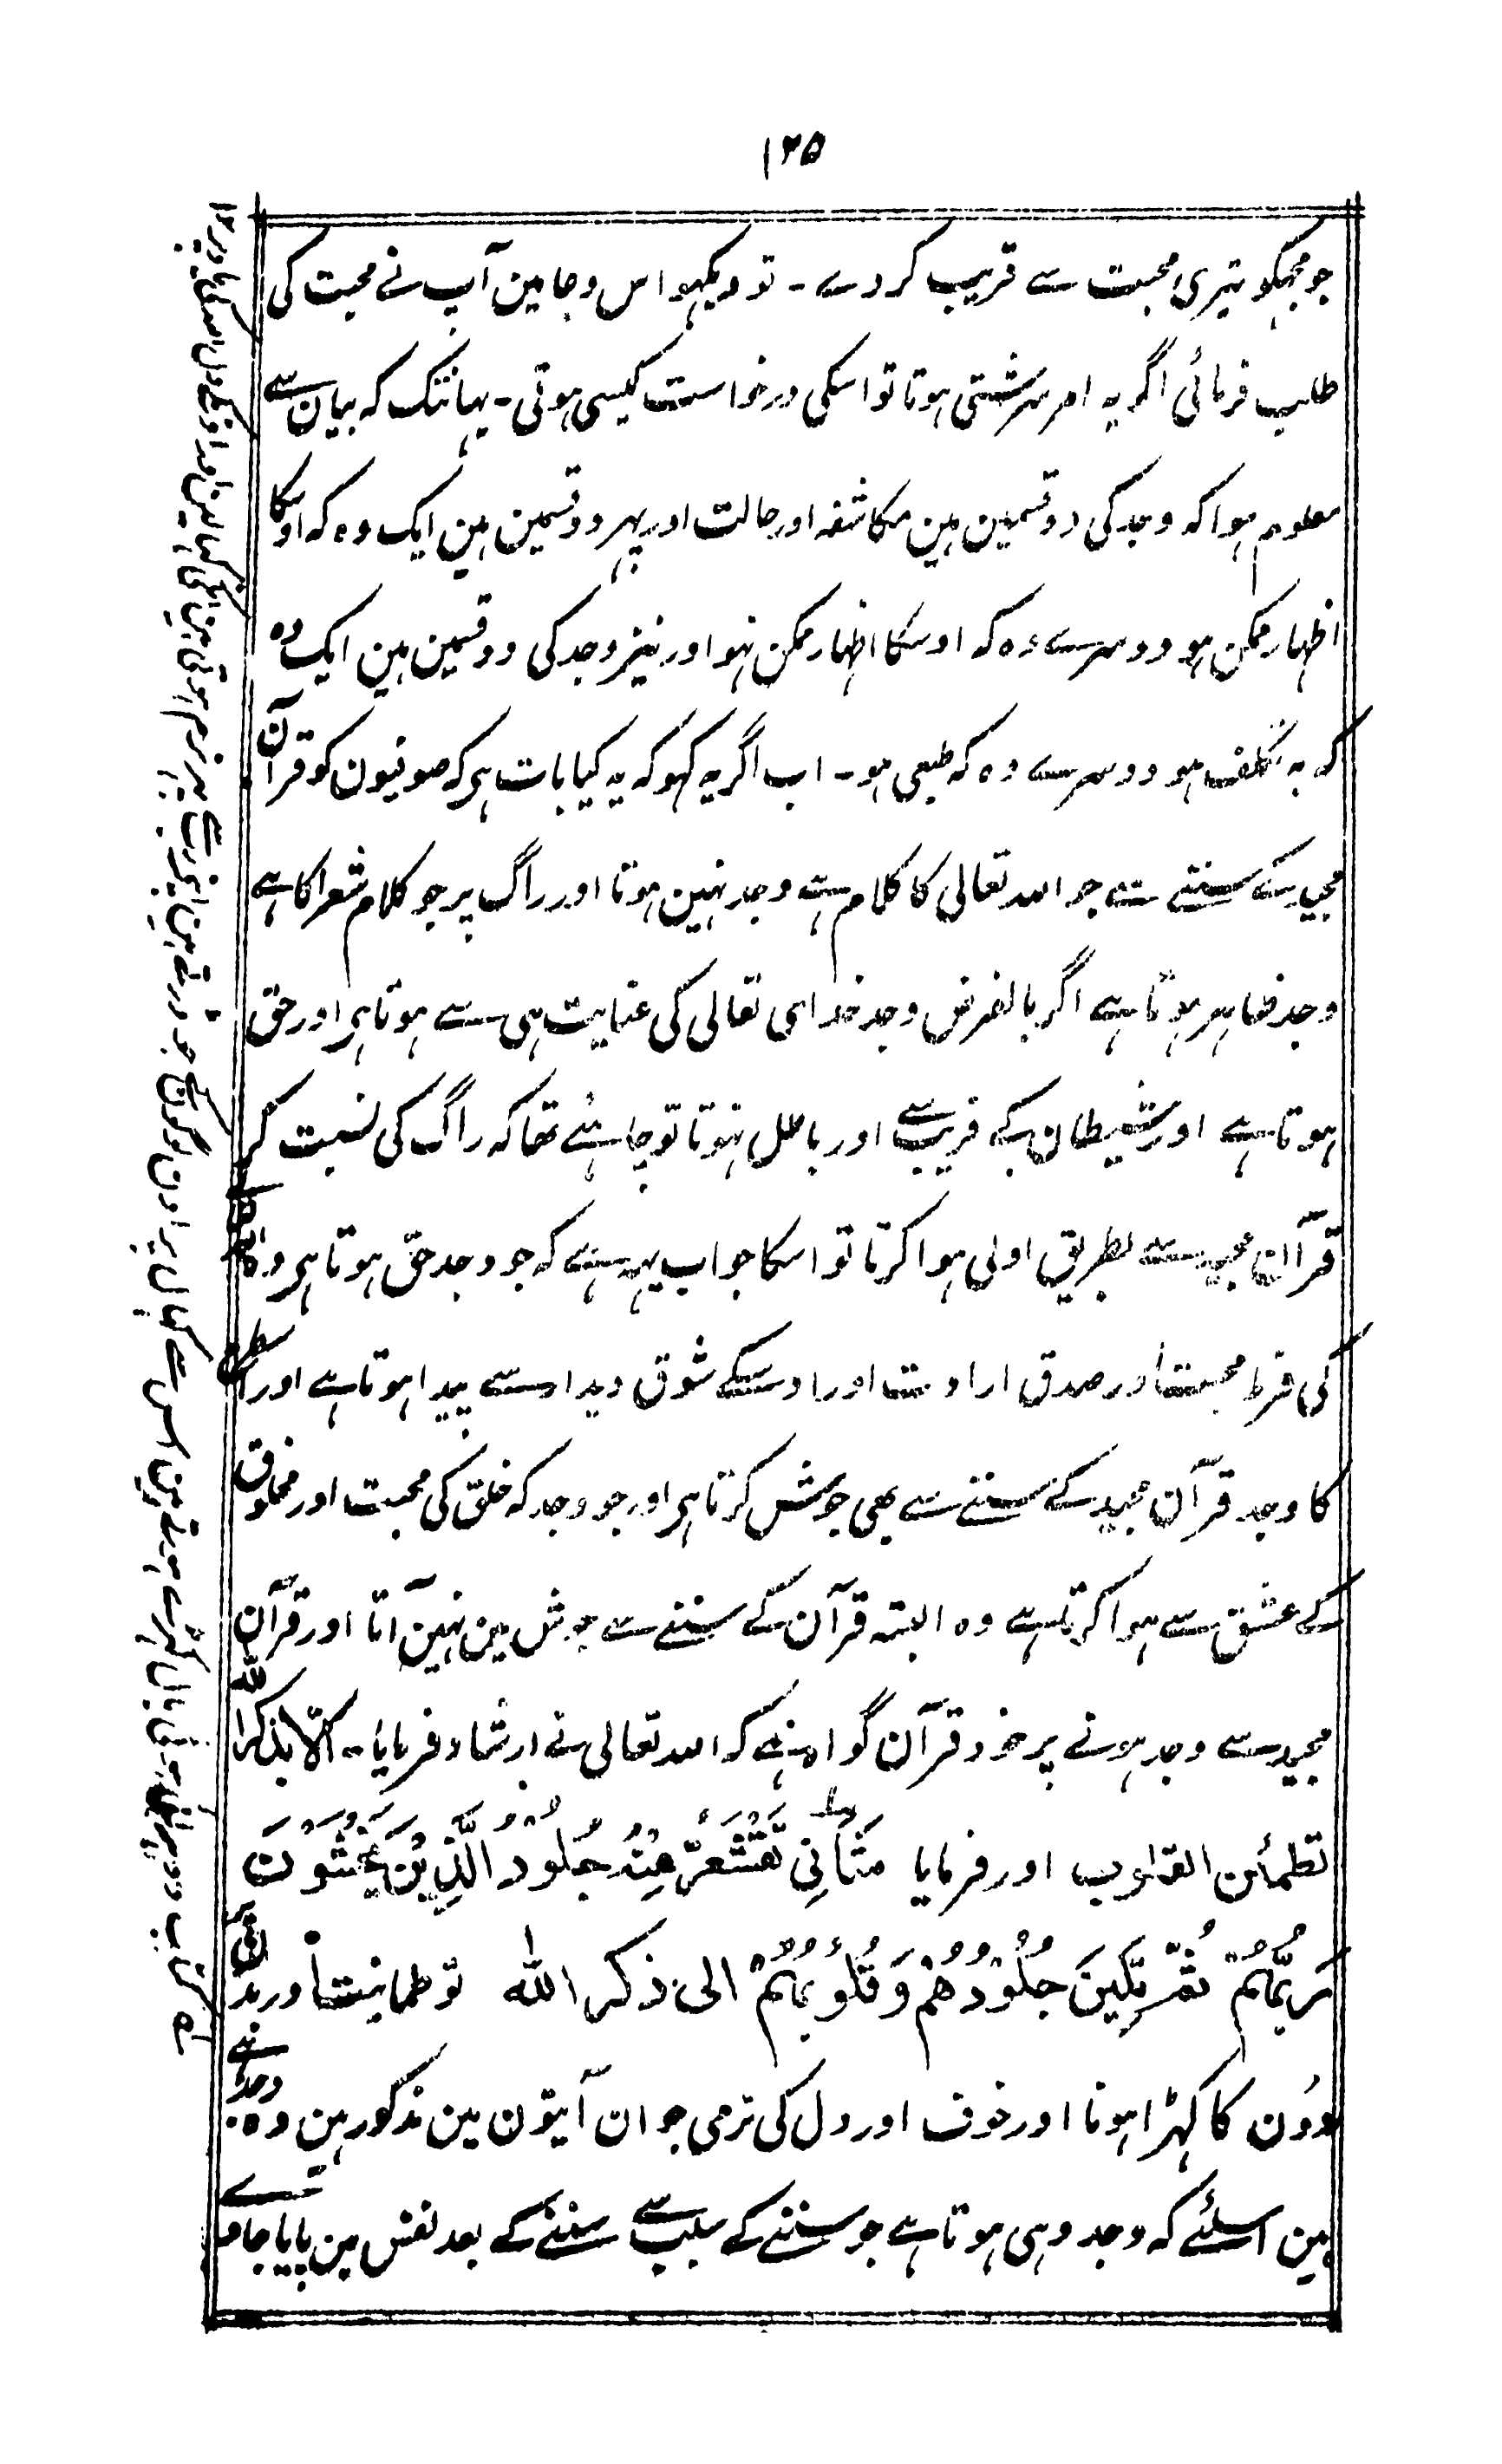 ۱۲۵
جو مجہکو تیری محبت سے قریب کر دے - تو دیکہو اس دعا مین آپ نے محبت کی
طلب فرمائی اگر یہ امر سرشتی ہوتا تو اسکی درخواست کیسی ہوتی - یہانتک کہ بیان سے
معلوم ہوا کہ وجد کی دو قسمین ہین مکاشفہ اور حالت اور پہر دو قسمین ہین ایک وہ کہ اوسکا
اظہار ممکن ہو دوسرے وہ کہ اوسکا اظہار ممکن نہو اور نیز وجد کی دو قسمین ہین ایک وہ
کہ بہ تکلف ہو دوسرے وہ کہ طبعی ہو - اب اگر یہ کہو کہ یہ کیا بات ہی کہ صوفیون کو قرآن
مجید کے سننے سے جو اللہ تعالی کا کلام ہے وجد نہین ہوتا اور راگ پر جو کلام شعرا کا ہے
وجد ظاہر ہوتا ہے اگر بالفرض وجد خداہی تعالی کی عنایت ہی سے ہوتا ہی اور حق
ہوتا ہے اور شیطان کے فریب سے اور باطل نہوتا تو چاہئے تھا کہ راگ کی نسبت کر
قرآن مجید سے بطریق اولی ہوا کرتا تو اسکا جواب یہہ ہے کہ جو وجد حق ہوتا ہی وہ
کی فرط محبت اور صدق ارادت اور اوسکے شوق دیدار سے پیدا ہوتا ہے اور
کا وجد قرآن مجید کے سننے سے بھی جوش کرتا ہی اور جو وجد کہ خلق کی محبت اور مخلوق
کے عشق سے ہوا کرتا ہے وہ البتہ قرآن کے سننے سے جوش مین نہین آتا اور قرآن
مجید سے وجد ہونے پر خود قرآن گواہ ہے کہ اللہ تعالی نے ارشاد فرمایا - الّا بذکر اللہ
تطمئن القلوب اور فرمایا مَثَانِی تَقْشَعِرُّ مِنْہُ جُلُوْدُ الَّذِیْنَ یَخْشَوْنَ
رَبَّہُمْ ثُمَّ تَلِیْنَ جُلُوْدُھُمْ وَقُلُوْبُہُمْ الی ذکر اللہ تو طمانیت اور بدن کے
رؤون کا کہڑا ہونا اور خوف اور دل کی نرمی جو ان آیتون مین مذکور ہین وہ وجد ہے
ہین اسلئے کہ وجد وہی ہوتا ہے جو سننے کے سبب سے سننے کے بعد نفس مین پایا جاوے
لہ کتاب دوہرائی ہوئی بال کہڑے ہوتے ہین اس سے کہال پر اون لوگون کے جو ڈرتے ہین اپنے رب سے پہر نرم ہوتی ہین اونکی کہالین اور اونکے دل اللہ کی یاد پر ۱۲